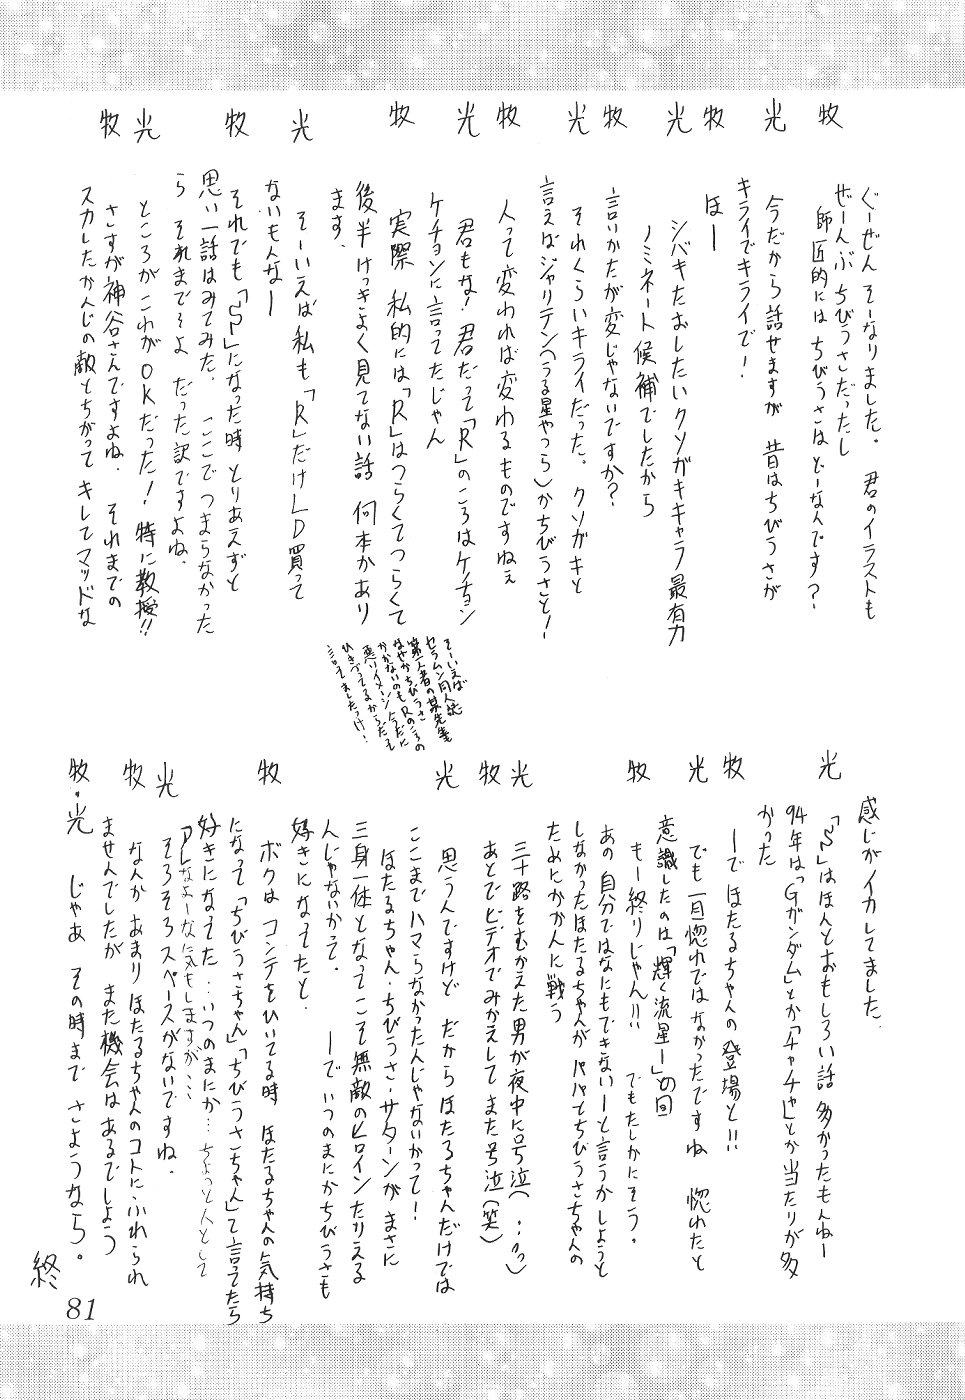 ぐーぜんそーなりました。 君のイラストも
ぜーんぶちびうさだったし
牧 師匠的にはちびうさはどーなんです?
光 今だから話せますが 昔はちびうさが
キライでキライで!
牧 ほー
光 シバキたおしたいクソガキキャラ最有力
ノミネート候補でしたから
牧 言いかたが変じゃないですか?
光 それくらいキライだった。クソガキと
言えばジャリテン(うる星やつら)かちびうさと!
牧 人って変われば変わるものですねぇ
光 君もな!君だって「R」のころはケチョン
ケチョンに言ってたじゃん
牧 実際 私的には「R」はつらくてつらくて
後半けっきょく見てない話 何本かあり
ます、
光 そーいえば私も「R」だけLD買って
ないもんなー
牧 それでも「S」になった時とりあえずと
思い一話はみてみた、 ここでつまらなかった
ら それまでさよ だった訳ですよね、
光 ところがこれがOKだった!特に教授!!
牧 さすが神谷さんですよね、 それまでの
スカしたかんじの敵とちがってキレてマッドな
そーいえば
セラムン同人誌
第一人者の某先生も
なぜかちびうさ
かかないのもRのころの
悪いイメージ 今だに
ひきづってるからだと
言ってましたっけ!
感じがイカしてました、
光 「S」はほんとおもしろい話多かったもんねー
94年は「Gガンダム」とか「チャチャ」とか当たりが多
かった
牧 ーでほたるちゃんの登場と!!
光 でも一目惚れではなかったですね 惚れたと
意識したのは「輝く流星ー」の回
牧 もー終りじゃん!! でもたしかにそう。
あの自分ではなにもできないーと言うかしようと
しなかったほたるちゃんが パパとちびうさちゃんの
ためにかかんに戦う
光 三十路をむかえた男が夜中に号泣(
牧 あとでビデオでみかえしてまた号泣(笑)
光 思うんですけど だからほたるちゃんだけでは
ここまでハマらなかったんじゃないかって!
ほたるちゃん・ちびうさ・サターンがまさに
三身一体となってこそ無敵のヒロインたりえる
んじゃないかって。 ーでいつのまにかちびうさも
好きになってたと
牧 ボクはコンテをひいてる時 ほたるちゃんの気持ち
になって「ちびうさちゃん」「ちびうさちゃん」て言ってたら
好きになってた‥いつのまにか‥ちょっと人として
アレなよーな気もしますが…
光 そろそろスペースがないですね。
牧 なんかあまりほたるちゃんのコトにふれられ
ませんでしたが また機会はあるでしょう
牧・光 じゃあ その時まで さようなら。
終
81